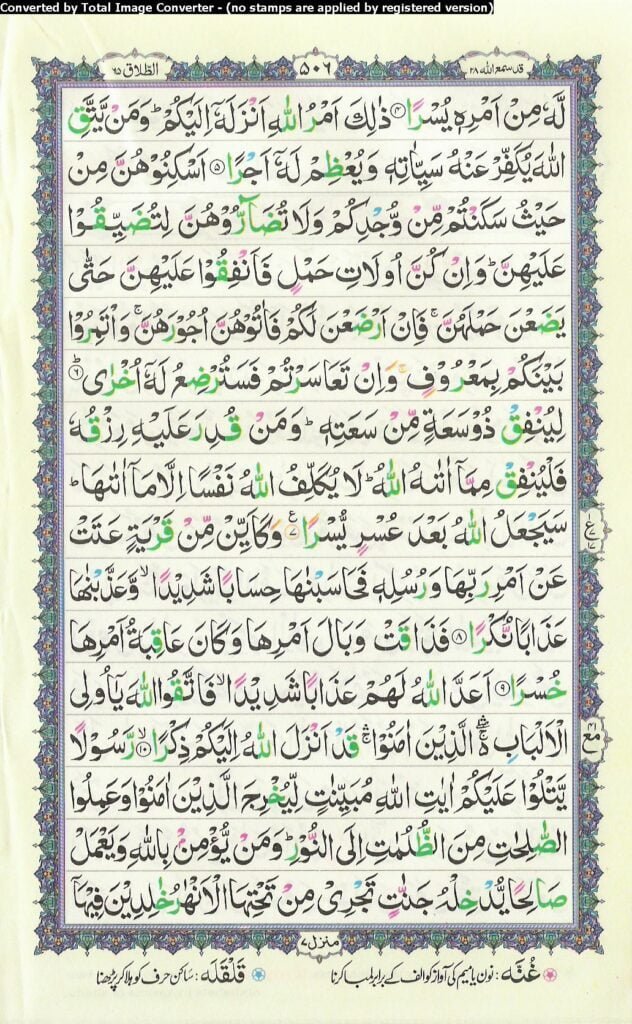 Converted by Total Image Converter - (no stamps are applied by registered version)
قد سمع الله ٢٨
٥٠٦
الطلاق ٦٥
لَّهٗ مِنْ اَمْرِهٖ يُسْرًا ۴ ذٰلِكَ اَمْرُ اللّٰهِ اَنْزَلَهٗۤ اِلَيْكُمْ ؕ وَمَنْ يَّتَّقِ
اللّٰهَ يُكَفِّرْ عَنْهُ سَيِّاٰتِهٖ وَيُعْظِمْ لَهٗۤ اَجْرًا ۵ اَسْكِنُوْهُنَّ مِنْ
حَيْثُ سَكَنْتُمْ مِّنْ وُّجْدِكُمْ وَلَا تُضَآرُّوْهُنَّ لِتُضَيِّقُوْا
عَلَيْهِنَّ ؕ وَاِنْ كُنَّ اُولَاتِ حَمْلٍ فَاَنْفِقُوْا عَلَيْهِنَّ حَتّٰى
يَضَعْنَ حَمْلَهُنَّ ۚ فَاِنْ اَرْضَعْنَ لَكُمْ فَاٰتُوْهُنَّ اُجُوْرَهُنَّ ۚ وَاْتَمِرُوْا
بَيْنَكُمْ بِمَعْرُوْفٍ ۚ وَاِنْ تَعَاسَرْتُمْ فَسَتُرْضِعُ لَهٗۤ اُخْرٰى ؕ ۶
لِيُنْفِقْ ذُوْ سَعَةٍ مِّنْ سَعَتِهٖ ؕ وَمَنْ قُدِرَ عَلَيْهِ رِزْقُهٗ
فَلْيُنْفِقْ مِمَّاۤ اٰتٰىهُ اللّٰهُ ؕ لَا يُكَلِّفُ اللّٰهُ نَفْسًا اِلَّا مَاۤ اٰتٰىهَا ؕ
سَيَجْعَلُ اللّٰهُ بَعْدَ عُسْرٍ يُّسْرًا ۷ ع وَكَاَيِّنْ مِّنْ قَرْيَةٍ عَتَتْ
عَنْ اَمْرِ رَبِّهَا وَرُسُلِهٖ فَحَاسَبْنٰهَا حِسَابًا شَدِيْدًا ۙ وَّعَذَّبْنٰهَا
عَذَابًا نُّكْرًا ۸ فَذَاقَتْ وَبَالَ اَمْرِهَا وَكَانَ عَاقِبَةُ اَمْرِهَا
خُسْرًا ۹ اَعَدَّ اللّٰهُ لَهُمْ عَذَابًا شَدِيْدًا ۙ فَاتَّقُوا اللّٰهَ يٰۤاُولِى
الْاَلْبَابِ ۛۚ الَّذِيْنَ اٰمَنُوْا ۛ قَدْ اَنْزَلَ اللّٰهُ اِلَيْكُمْ ذِكْرًا ۙ ۱۰ رَّسُوْلًا
يَّتْلُوْا عَلَيْكُمْ اٰيٰتِ اللّٰهِ مُبَيِّنٰتٍ لِّيُخْرِجَ الَّذِيْنَ اٰمَنُوْا وَعَمِلُوا
الصّٰلِحٰتِ مِنَ الظُّلُمٰتِ اِلَى النُّوْرِ ؕ وَمَنْ يُّؤْمِنْۢ بِاللّٰهِ وَيَعْمَلْ
صَالِحًا يُّدْخِلْهُ جَنّٰتٍ تَجْرِىْ مِنْ تَحْتِهَا الْاَنْهٰرُ خٰلِدِيْنَ فِيْهَاۤ
منزل ۷
غُنَّه: نون یا میم کی آواز کو الف کے برابر لمبا کرنا
قَلْقَلَه: ساکن حرف کو ہلا کر پڑھنا